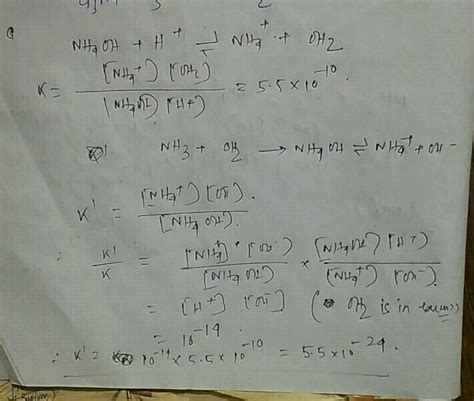 NH4OH + H+ ⇌ NH4+ + OH2
K = [NH4+] [OH2] / [NH4OH] [H+] = 5.5 × 10^-10.
NH3 + OH2 → NH4OH ⇌ NH4+ + OH-
K' = [NH4+] [OH-] / [NH4OH].
∴ K'/K = [NH4+] [OH-] / [NH4OH] × [NH4OH] [H+] / [NH4+] [OH-]
= [H+] [OH-] ( OH2 is in )
= 10^-14
∴ K' = 10^-14 × 5.5 × 10^-10 = 5.5 × 10^-24.